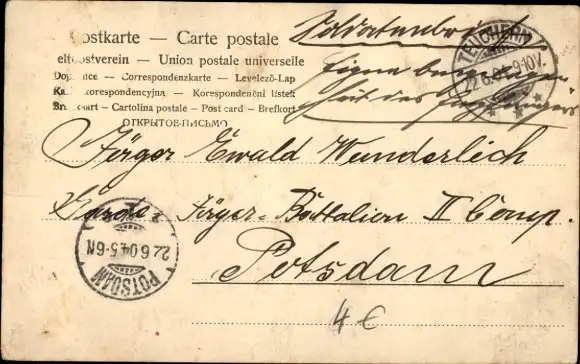 Postkarte — Carte postale
eltpostverein — Union postale universelle
Dop nce — Correspondenzkarte — Levelező-Lap
Ka korespondencyjna — Korespondenční lístek
Br aart — Cartolina postale — Post card — Brefkort
ОТКРЫТОЕ ПИСЬМО
Soldatenbrief
Eigene
des Empfängers
TEUCHERN
22.6.04. 9-10V.
Jäger Ewald Wunderlich
Garde-Jäger-Battalion II Comp.
Potsdam
POTSDAM
22.6.04.5-6N.
4 €